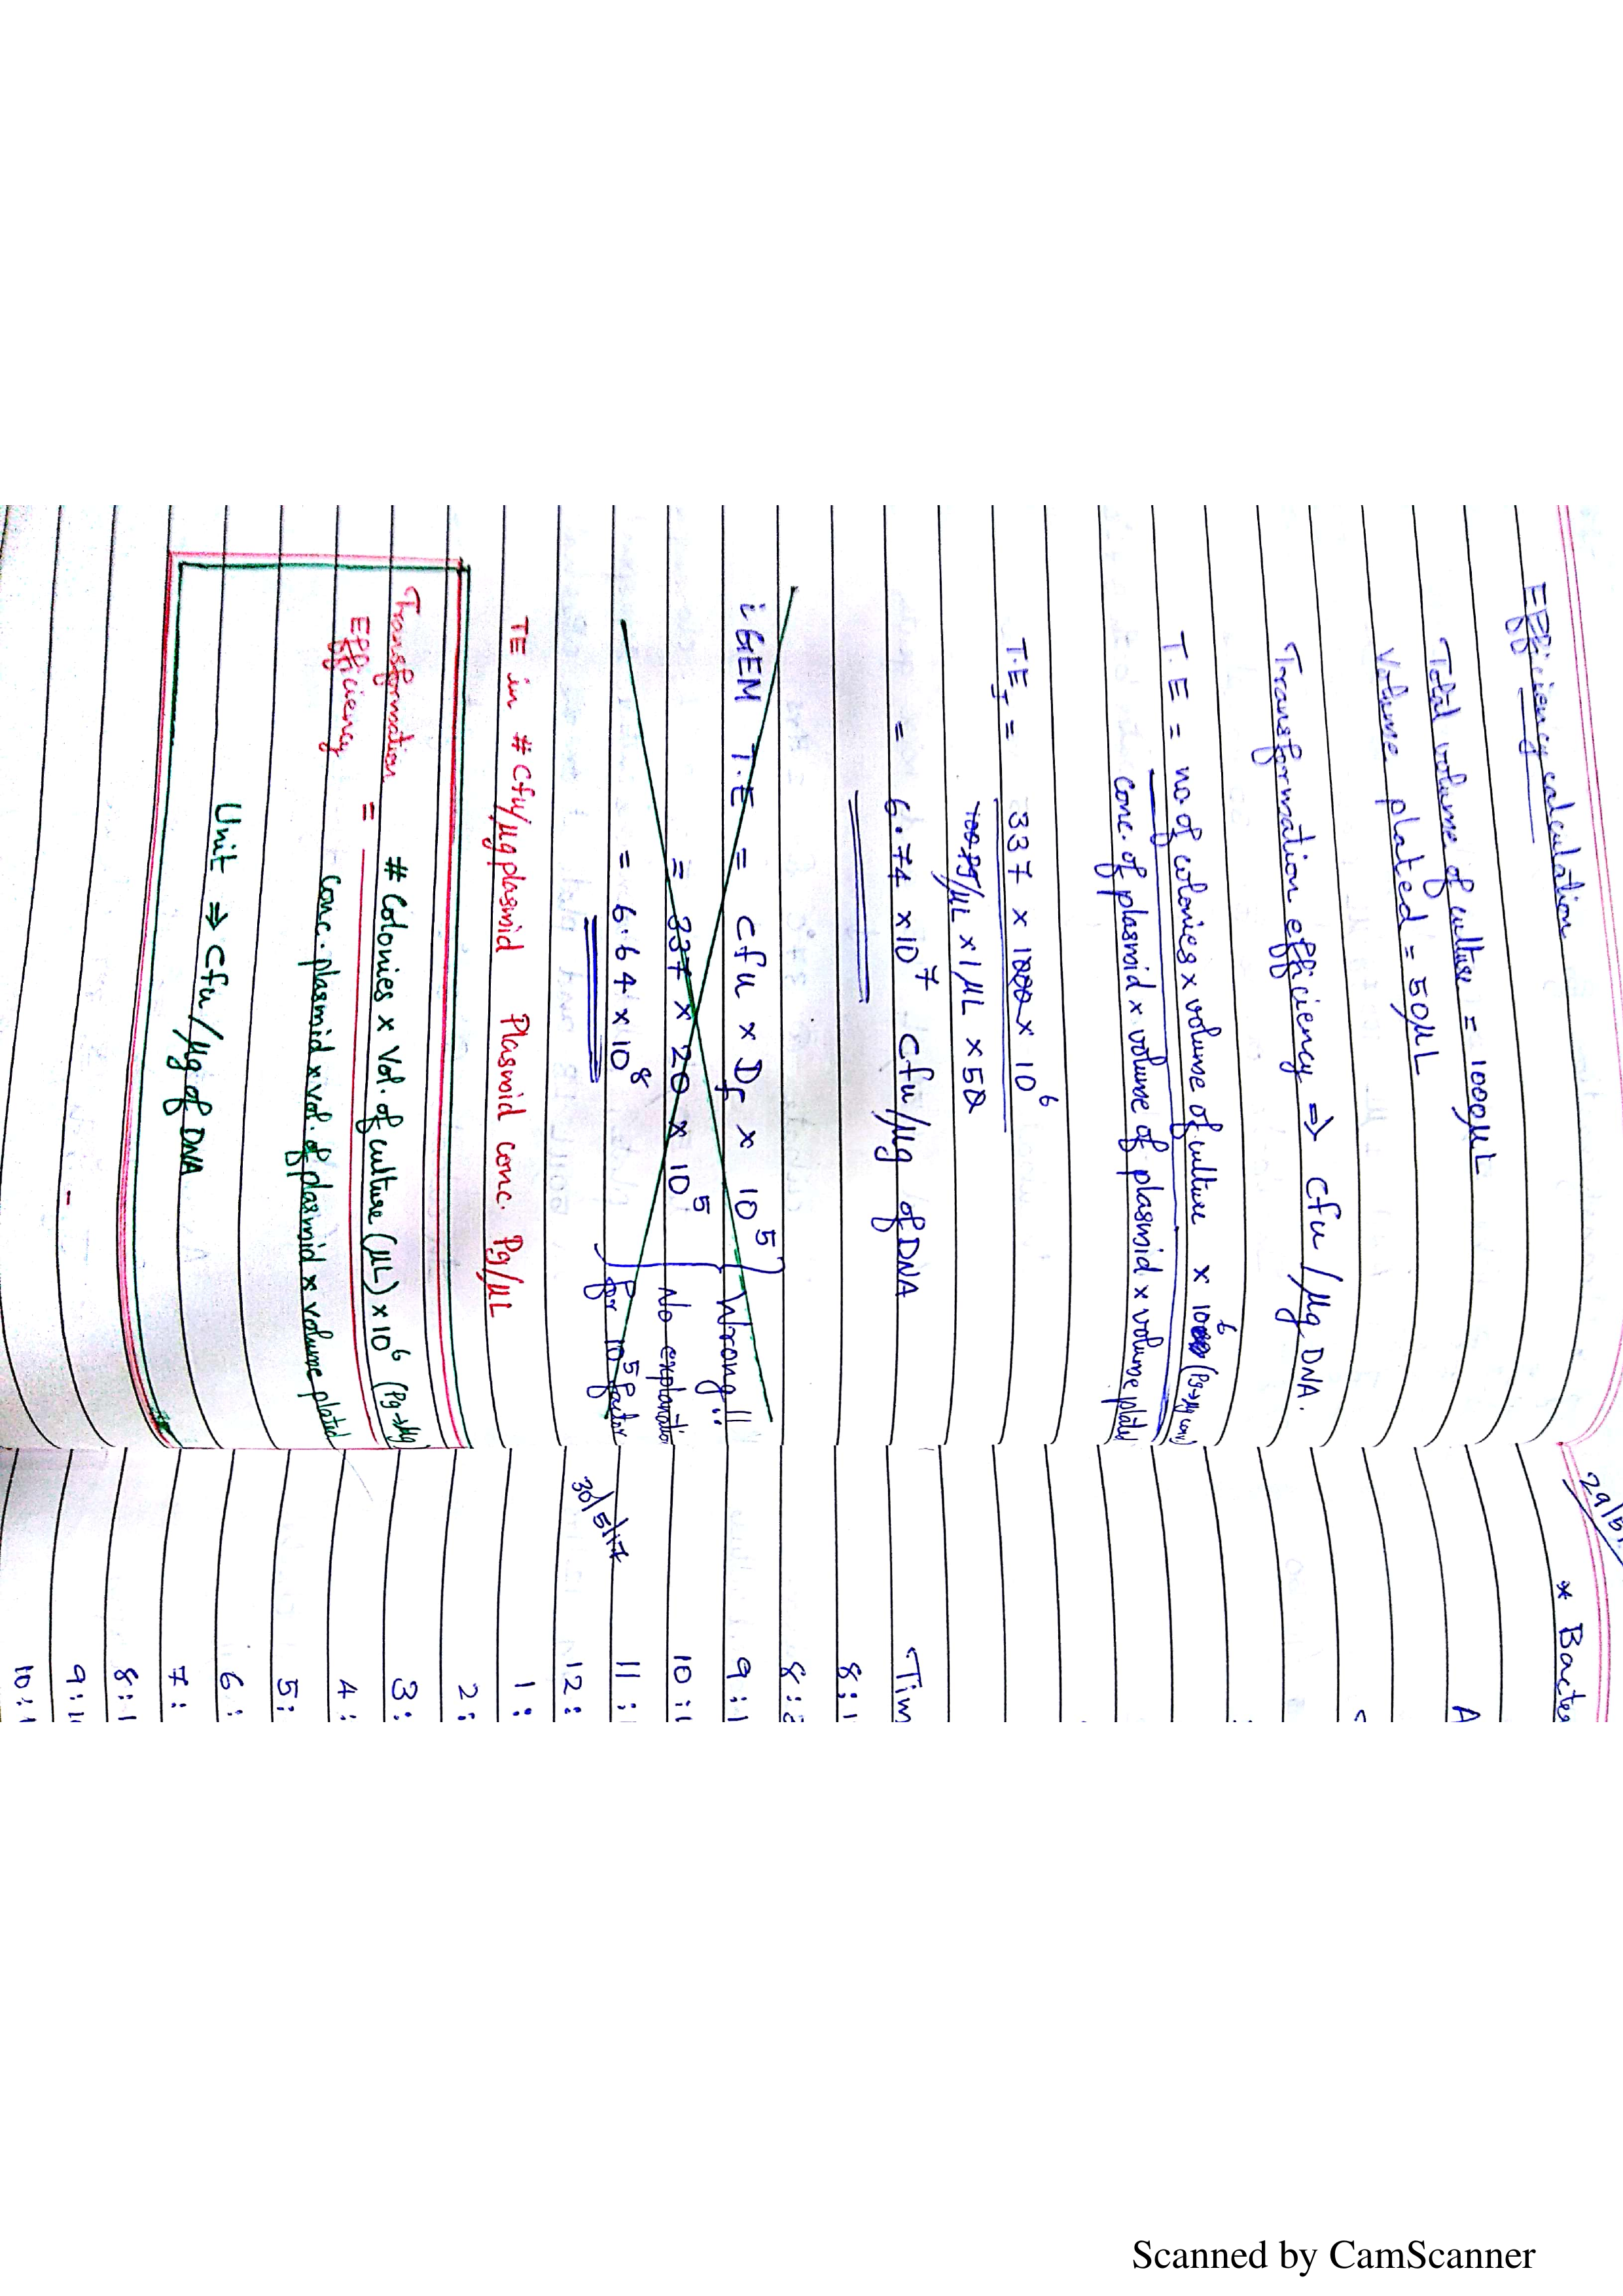 Efficiency calculation
Total volume of culture = 1000µL
Volume plated = 50µL
Transformation efficiency ⇒ cfu/µg DNA.
T.E = no of colonies x volume of culture x 10⁶ (Pg→µg conv)
conc. of plasmid x volume of plasmid x volume plated
T.E = 337 x 1000 x 10⁶
100 Pg/µL x 1µL x 50
= 6.74 x 10⁷ cfu/µg of DNA
iGEM T.E = cfu x Df x 10⁵ Wrong!!
= 337 x 20 x 10⁵ No explanation
= 6.64 x 10⁸ for 10⁵ factor
TE in #cfu/µg plasmid Plasmid conc. Pg/µL
Transformation Efficiency = # Colonies x Vol. of culture (µL) x 10⁶ (Pg→µg)
Conc. plasmid x vol. of plasmid x volume plated
Unit ⇒ cfu/µg of DNA
29/5
* Bacte
A
Tim
8:1
8:2
9:1
10:1
11:
30/5/17
12:
1:
2:
3:
4:
5:
6:
7:
8:1
9:1
10:1
Scanned by CamScanner